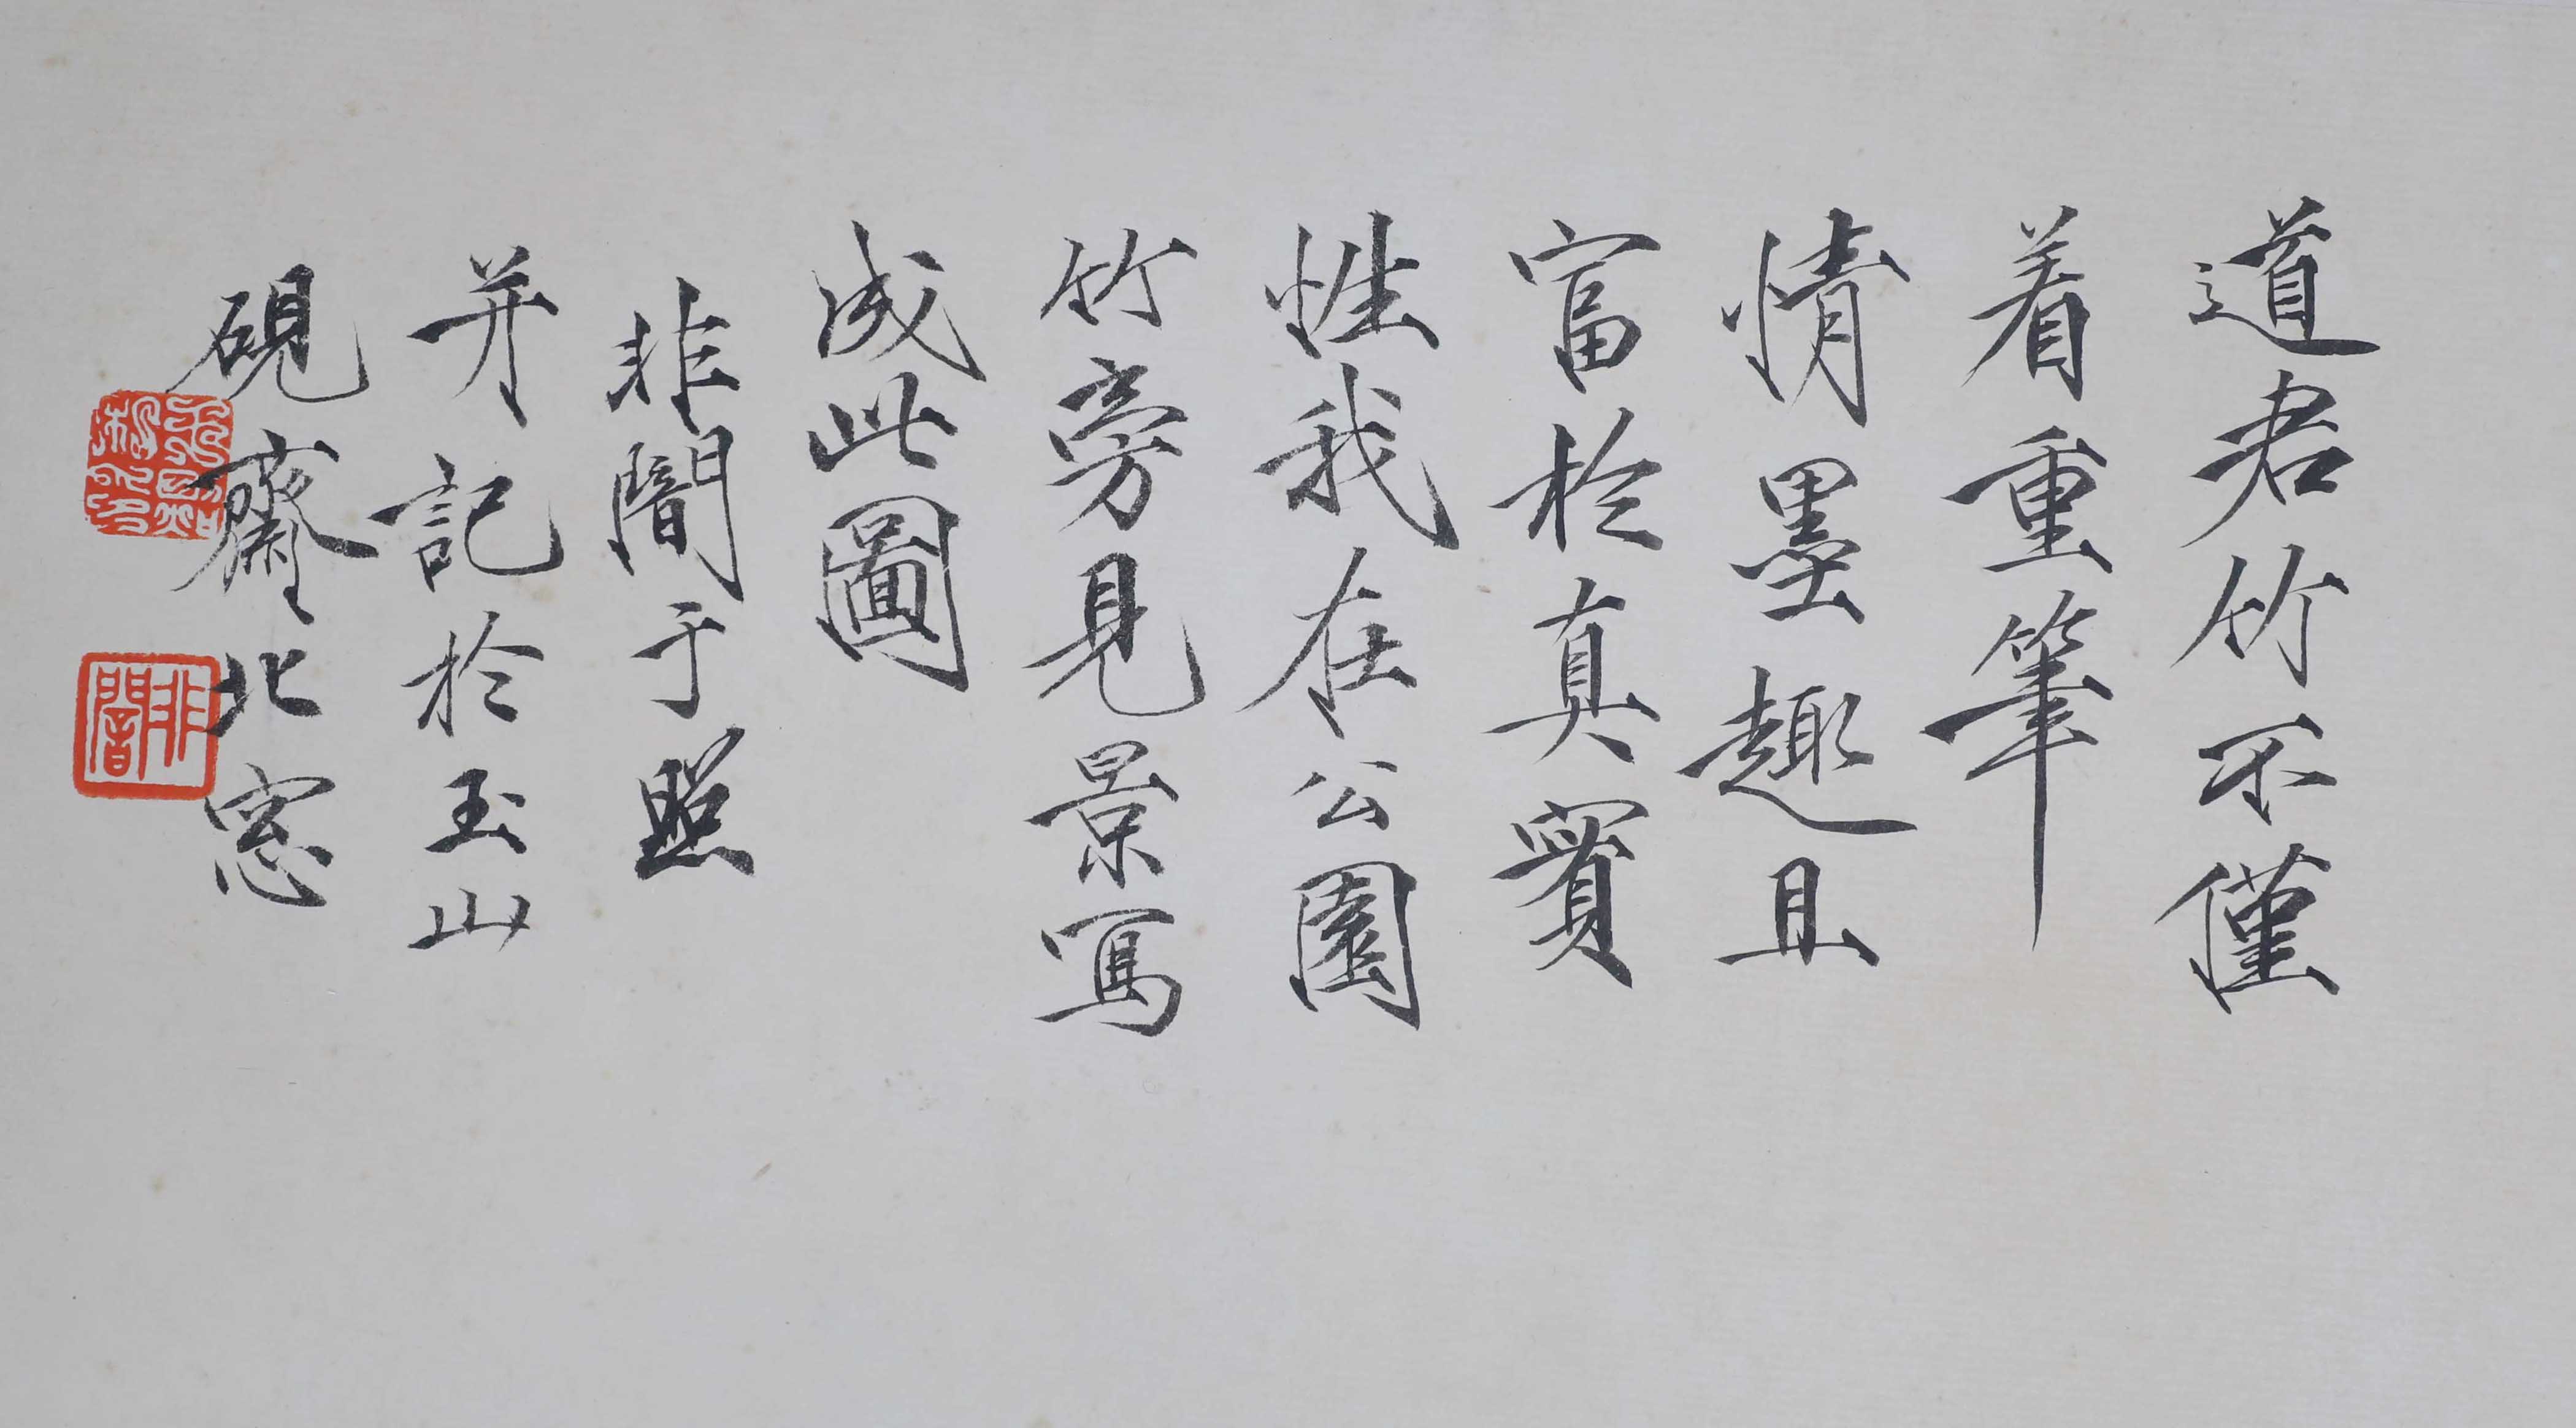 道君竹不僅
着重筆
情墨趣且
富於真實
性我在公園
竹旁見景寫
成此圖
非闇于照
并記於玉山
硯齋北窓
非闇